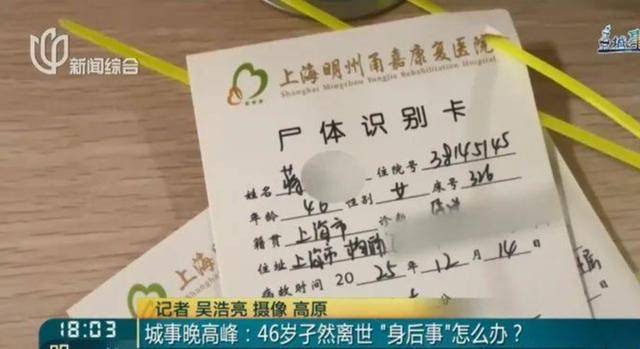 新闻综合
上海明州甬嘉康复医院
Shanghai Mingzhou Yongjia Rehabilitation Hospital
尸体识别卡
姓名 蒋 住院号 38145145
年龄 46 性别 女 床号 326
籍贯 上海市 诊断
住址 上海市
病故时间 2025年12月14日
上海明
记者 吴浩亮 摄像 高原
18:03 城事晚高峰：46岁孑然离世 "身后事"怎么办？